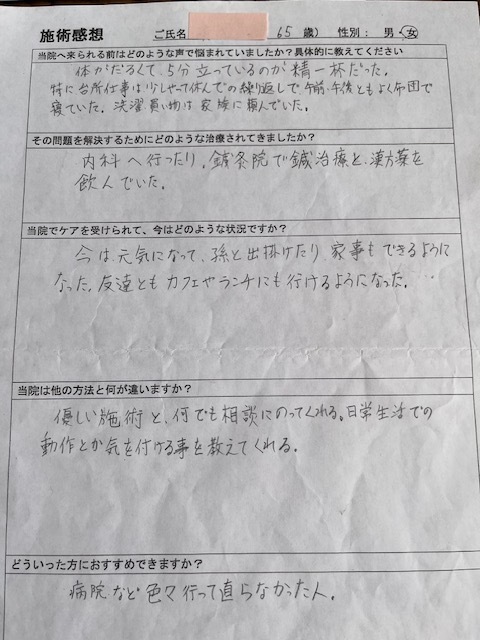 施術感想 ご氏名 65 歳) 性別: 男・女
当院へ来られる前はどのような声で悩まれていましたか?具体的に教えてください
体がだるくて、5分立っているのが精一杯だった。
特に台所仕事は少しやって休んでの繰り返しで午前・午後ともよく布団で
寝ていた。洗濯買い物は家族に頼んでいた。
その問題を解決するためにどのような治療されてきましたか?
内科へ行ったり、鍼灸院で鍼治療と、漢方薬を
飲んでいた。
当院でケアを受けられて、今はどのような状況ですか?
今は、元気になって、孫と出掛けたり、家事もできるように
なった。友達ともカフェやランチにも行けるようになった。
当院は他の方法と何が違いますか?
優しい施術と、何でも相談にのってくれる。日常生活での
動作とか気を付ける事を教えてくれる。
どういった方におすすめできますか?
病院など色々行って直らなかった人。